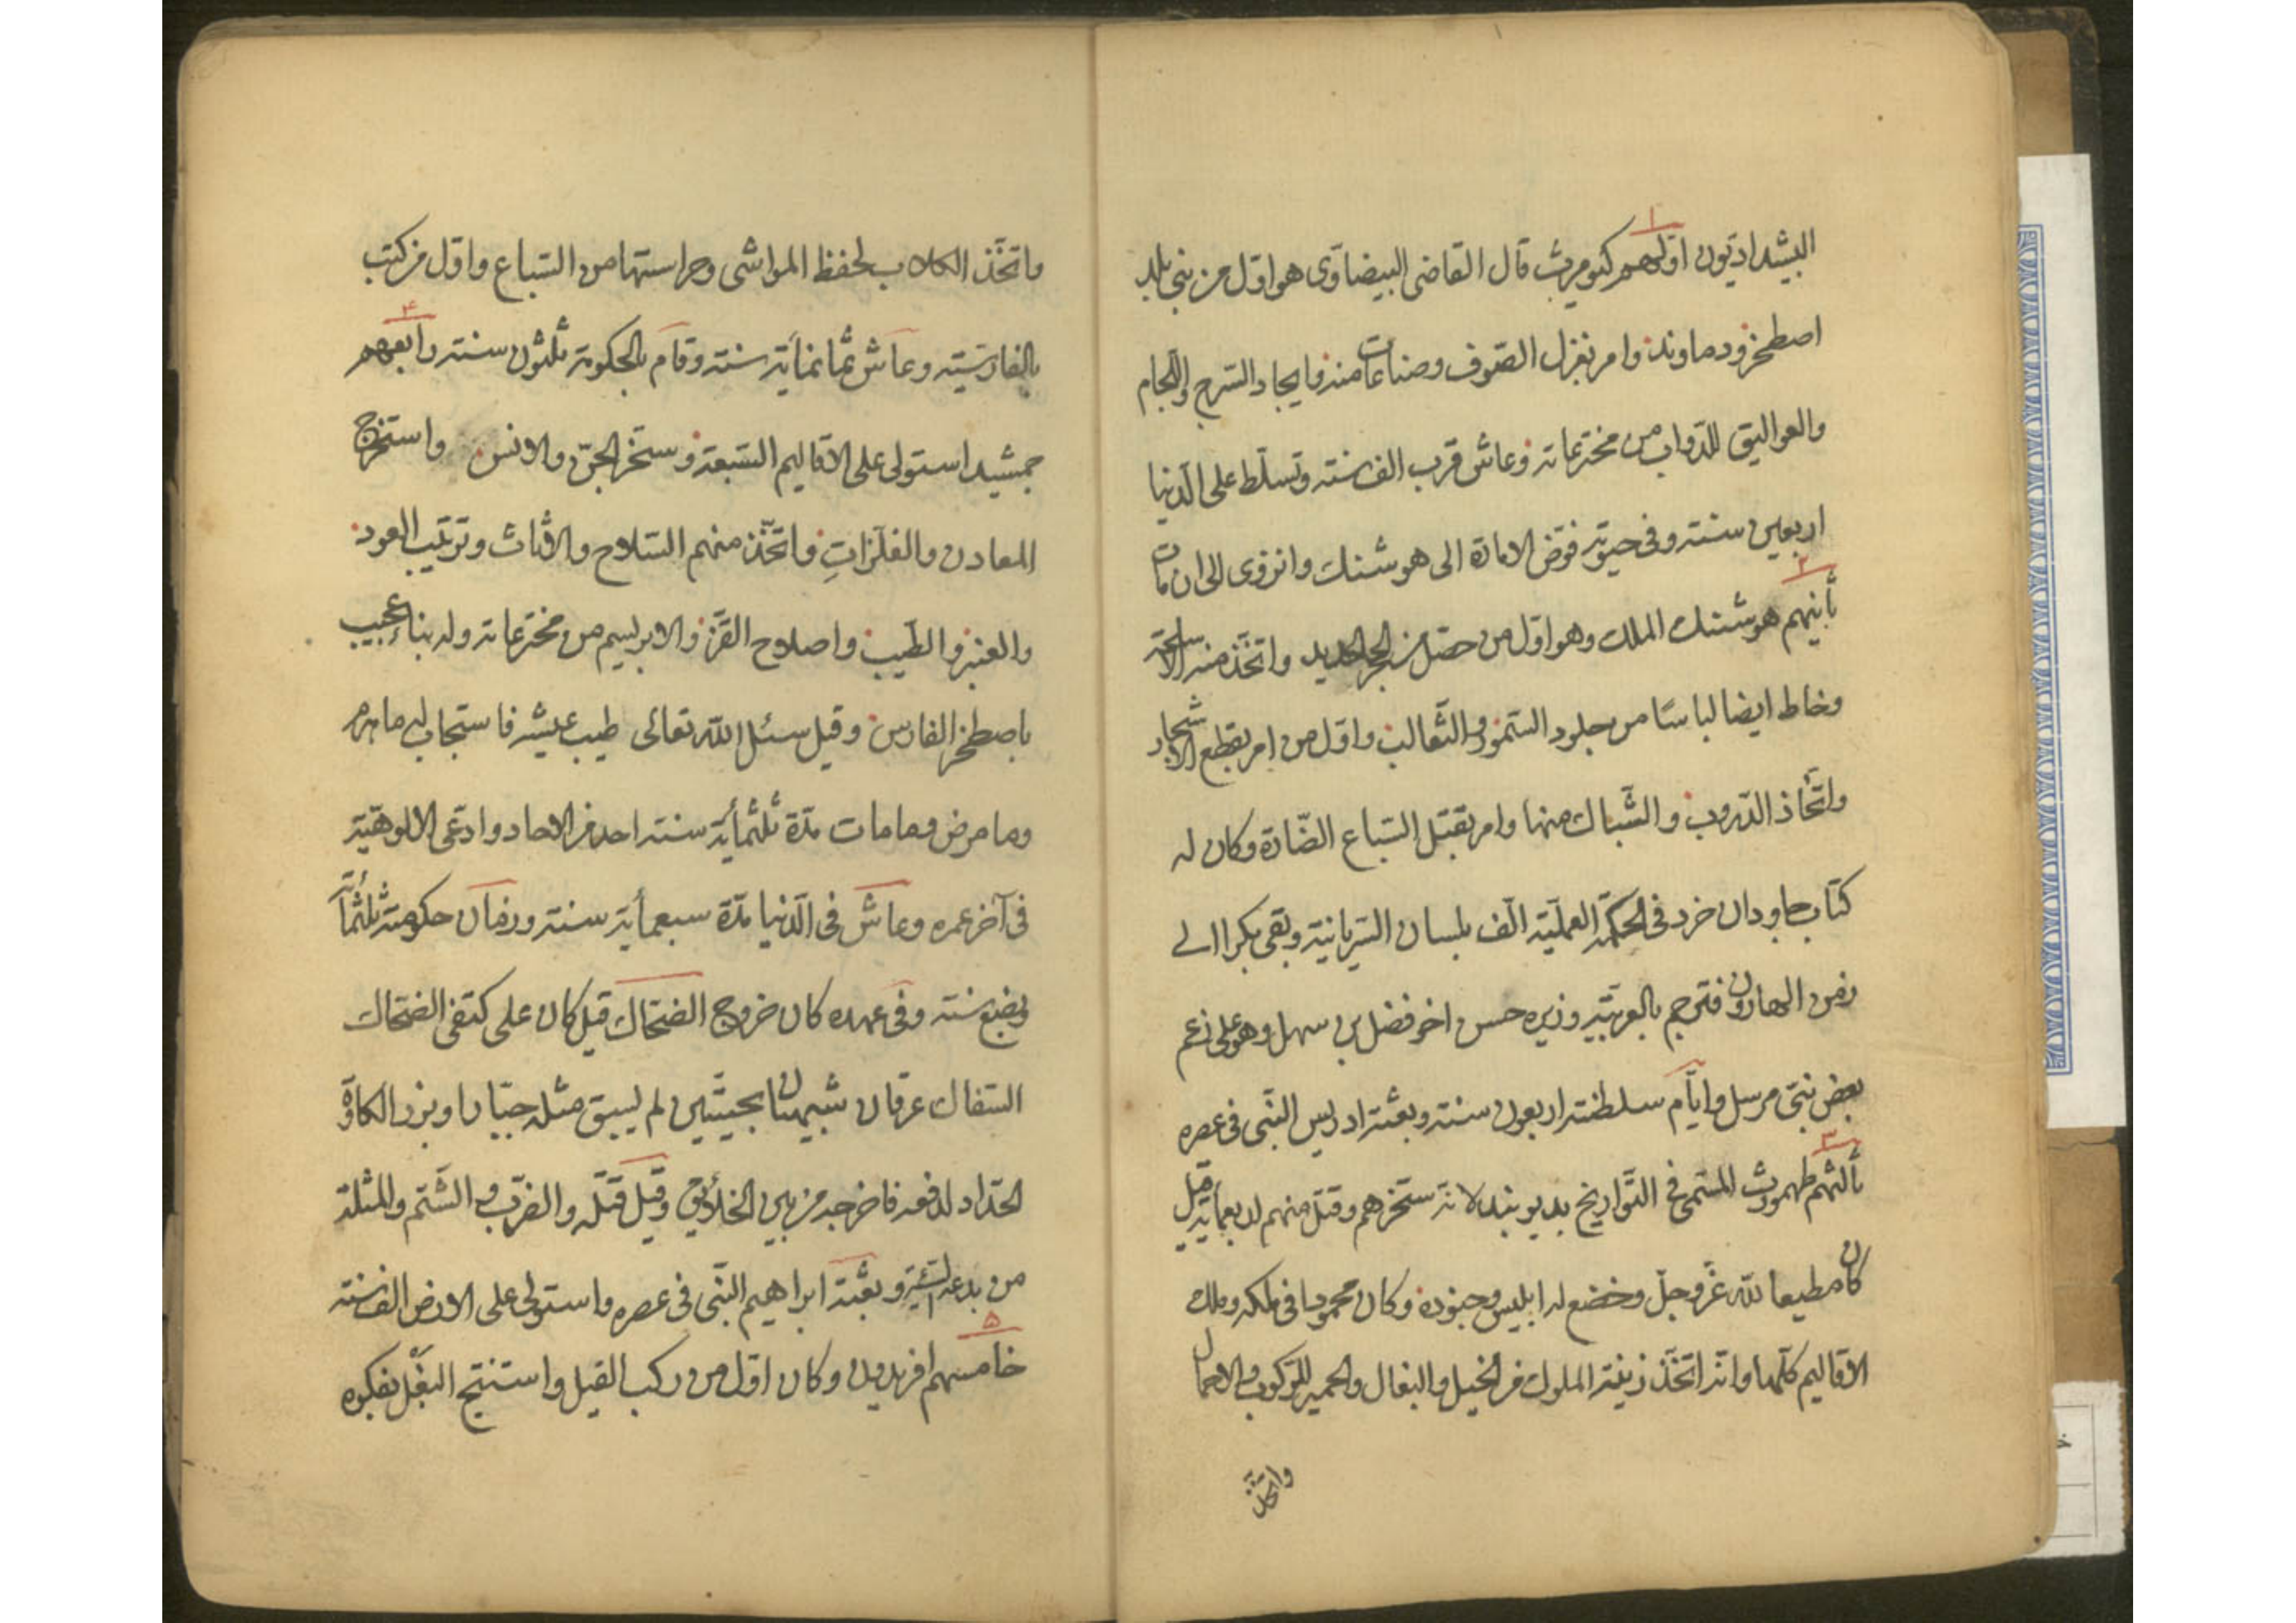 البیشدادیون اولهم کیومرث قال القاضی البیضاوی هو اول من بنی بلد
اصطخر ودماوند وامر بغزل الصوف وصناعات منه وایجاد السرج واللجام
والعوالیق للدواب من مخترعاته وعاش قرب الف سنته وتسلط علی الدنیا
اربعین سنته وفی حیوته فوض الامارة الی هوشنك وانزوی الی ان مات
۲
ثانیهم هوشنك الملك وهو اول من حصل من الحجر الحدید واتخذ منه الاسلحة
وخاط ایضا لباسًا من جلود السمور والثعالب واول من امر بقطع الاشجار
واتخاذ الدروب والشباك منها وامر بقتل السباع الضارة وکان له
کتاب جاودان خرد فی الحکمة العملیة الف بلسان السریانیة وبقی بکرا الی
زمن الهارون فترجم بالعربیة وزیره حسن اخو فضل بن سهل وهو علی زعم
بعض نبی مرسل وایام سلطنته اربعون سنته وبعثة ادریس النبی فی عصره
۳
ثالثهم طهمورث المسمی فی التواریخ بدیوبند لانه سخرهم وقتل منهم اربعمایة قیل
کان مطیعا لله عز وجل وخضع له ابلیس وجنوده وکان محمودا فی ملکه وملك
الاقالیم کلها وانه اتخذ زینة الملوك من الخیل والبغال والحمیر للرکوب والاحمال
واتخذ
واتخذ الکلاب لحفظ المواشی وحراستها من السباع واول من کتب
بالفارسیته وعاش ثمانمایة سنته وقام بالحکومة ثلثون سنته رابعهم
۴
جمشید استولی علی الاقالیم السبعة وسخر الجن والانس واستخرج
المعادن والفلزاتِ واتخذ منهم السلاح والاثاث وترتیب العود
والعنبر والطیب واصلاح القز والابریسم من مخترعاته وله بناء عجیب
باصطخر الفارس وقیل سئل الله تعالی طیب عیشه فاستجاب له ما هرم
وما مرض وما مات مدة ثلثمأیة سنته احد من الاحاد وادعی الالوهیة
فی آخر عمره وعاش فی الدنیا مدة سبعمأیة سنته وزمان حکومته ثلثمأیة
وبضع سنته وفی عهده کان خروج الضحاك قیل کان علی کتفی الضحاك
السفاك عرقان شبیهان بحیتین لم یسبق مثله جبارا وبرز الکاوة
الحداد لدفعه فاخرجه من بین الخلائق وقیل قتله والضرب والشتم والمثلة
من بدعه السیئة وبعثة ابراهیم النبی فی عصره واستولی علی الارض الف سنته
۵
خامسهم افریدون وکان اول من رکب الفیل واستنتج البغل بفکره